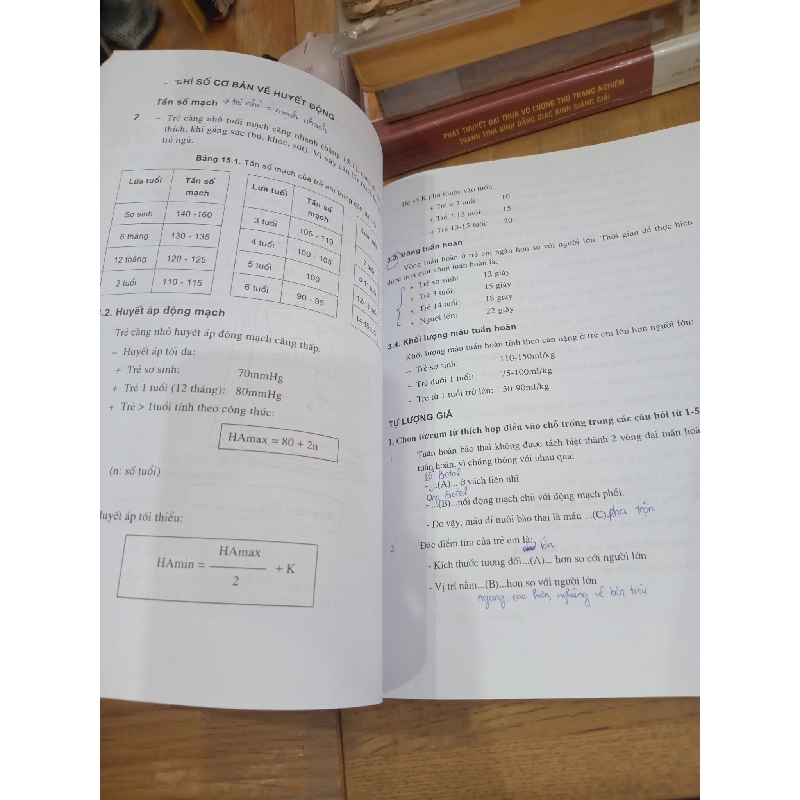 - CHỈ SỐ CƠ BẢN VỀ HUYẾT ĐỘNG
Tần số mạch → trẻ nhỏ = mạch nhanh
2 - Trẻ càng nhỏ tuổi mạch càng nhanh (bảng 15.1)
thích, khi gắng sức (bú, khóc, sốt). Vì vậy cần lấy
trẻ ngủ.
Bảng 15.1. Tần số mạch của trẻ em trong các
Lứa tuổi Tần số mạch
Sơ sinh 140 -160
6 tháng 130 - 135
12 tháng 120 - 125
2 tuổi 110 - 115
Lứa tuổi Tần số mạch
3 tuổi 105 - 110
4 tuổi 100 - 105
5 tuổi 100
6 tuổi 90 - 95
.2. Huyết áp động mạch
Trẻ càng nhỏ huyết áp động mạch càng thấp:
- Huyết áp tối đa:
+ Trẻ sơ sinh: 70mmHg
+ Trẻ 1 tuổi (12 tháng): 80mmHg
+ Trẻ > 1tuổi tính theo công thức:
HAmax = 80 + 2n
(n: số tuổi)
Huyết áp tối thiểu:
HAmin = HAmax / 2 + K
PHẬT THUYẾT ĐẠI THỪA VÔ LƯỢNG THỌ TRANG NGHIÊM
THANH TỊNH BÌNH ĐẲNG GIÁC KINH GIẢNG GIẢI
Hệ số K phụ thuộc vào tuổi:
+ Trẻ < 7 tuổi 10
+ Trẻ 7-12 tuổi: 15
+ Trẻ 13-15 tuổi: 20
3.3. Vòng tuần hoàn
Vòng tuần hoàn ở trẻ em ngắn hơn so với người lớn. Thời gian để thực hiện
được trọn một vòng tuần hoàn là:
+ Trẻ sơ sinh: 12 giây
+ Trẻ 3 tuổi: 15 giây
+ Trẻ 14 tuổi: 18 giây
+ Người lớn: 22 giây
3.4. Khối lượng máu tuần hoàn
Khối lượng máu tuần hoàn tính theo cân nặng ở trẻ em lớn hơn người lớn:
- Trẻ sơ sinh: 110-150ml/kg
- Trẻ dưới 1 tuổi: 75-100ml/kg
- Trẻ từ 1 tuổi trở lên: 50-90ml/kg
TỰ LƯỢNG GIÁ
1. Chọn từ/cụm từ thích hợp điền vào chỗ trống trong các câu hỏi từ 1-5
1 Tuần hoàn bào thai không được tách biệt thành 2 vòng đại tuần hoàn
tuần hoàn, vì chúng thông với nhau qua:
lỗ Botal
- ...(A)... ở vách liên nhĩ
ống botal
- ...(B)...nối động mạch chủ với động mạch phổi.
- Do vậy, máu đi nuôi bào thai là máu ...(C). pha trộn
2 Đặc điểm tim của trẻ em là:
lớn
- Kích thước tương đối...(A)... hơn so cới người lớn
- Vị trí nằm...(B)...hơn so với người lớn
ngang, cao hơn, nghiêng về bên trái